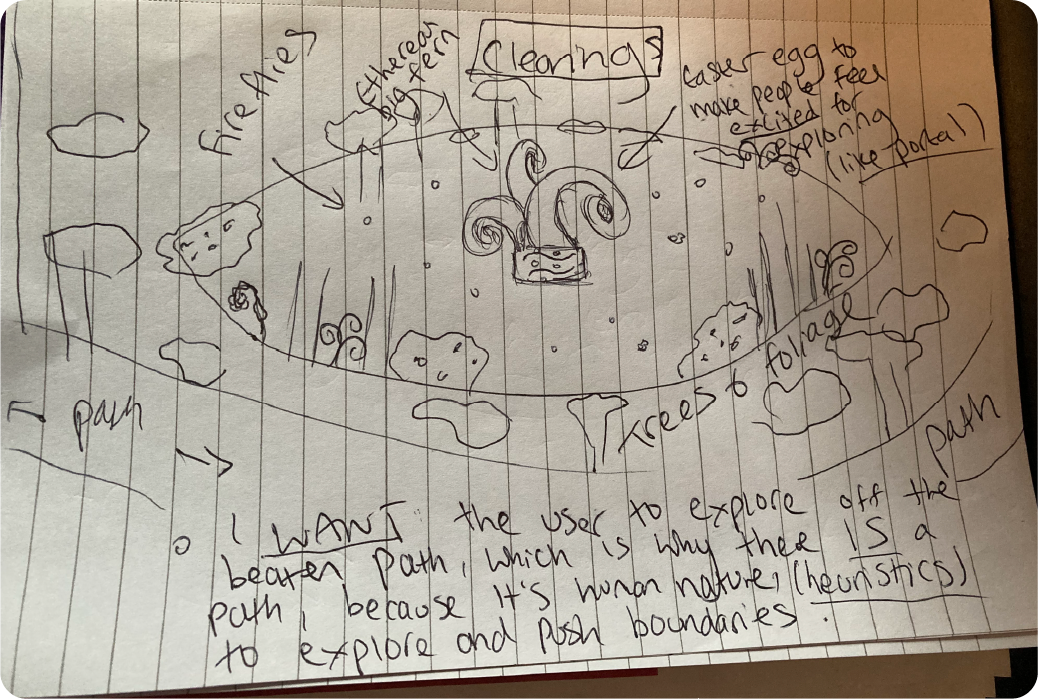 Clearings
fireflies
Ethereal
big fern
easter egg to
make people feel
excited for
exploring
(like portal)
trees & foliage
path
path
I WANT the user to explore off the
beaten path, which is why there IS a
path, because it's human nature, (heuristics)
to explore and push boundaries.